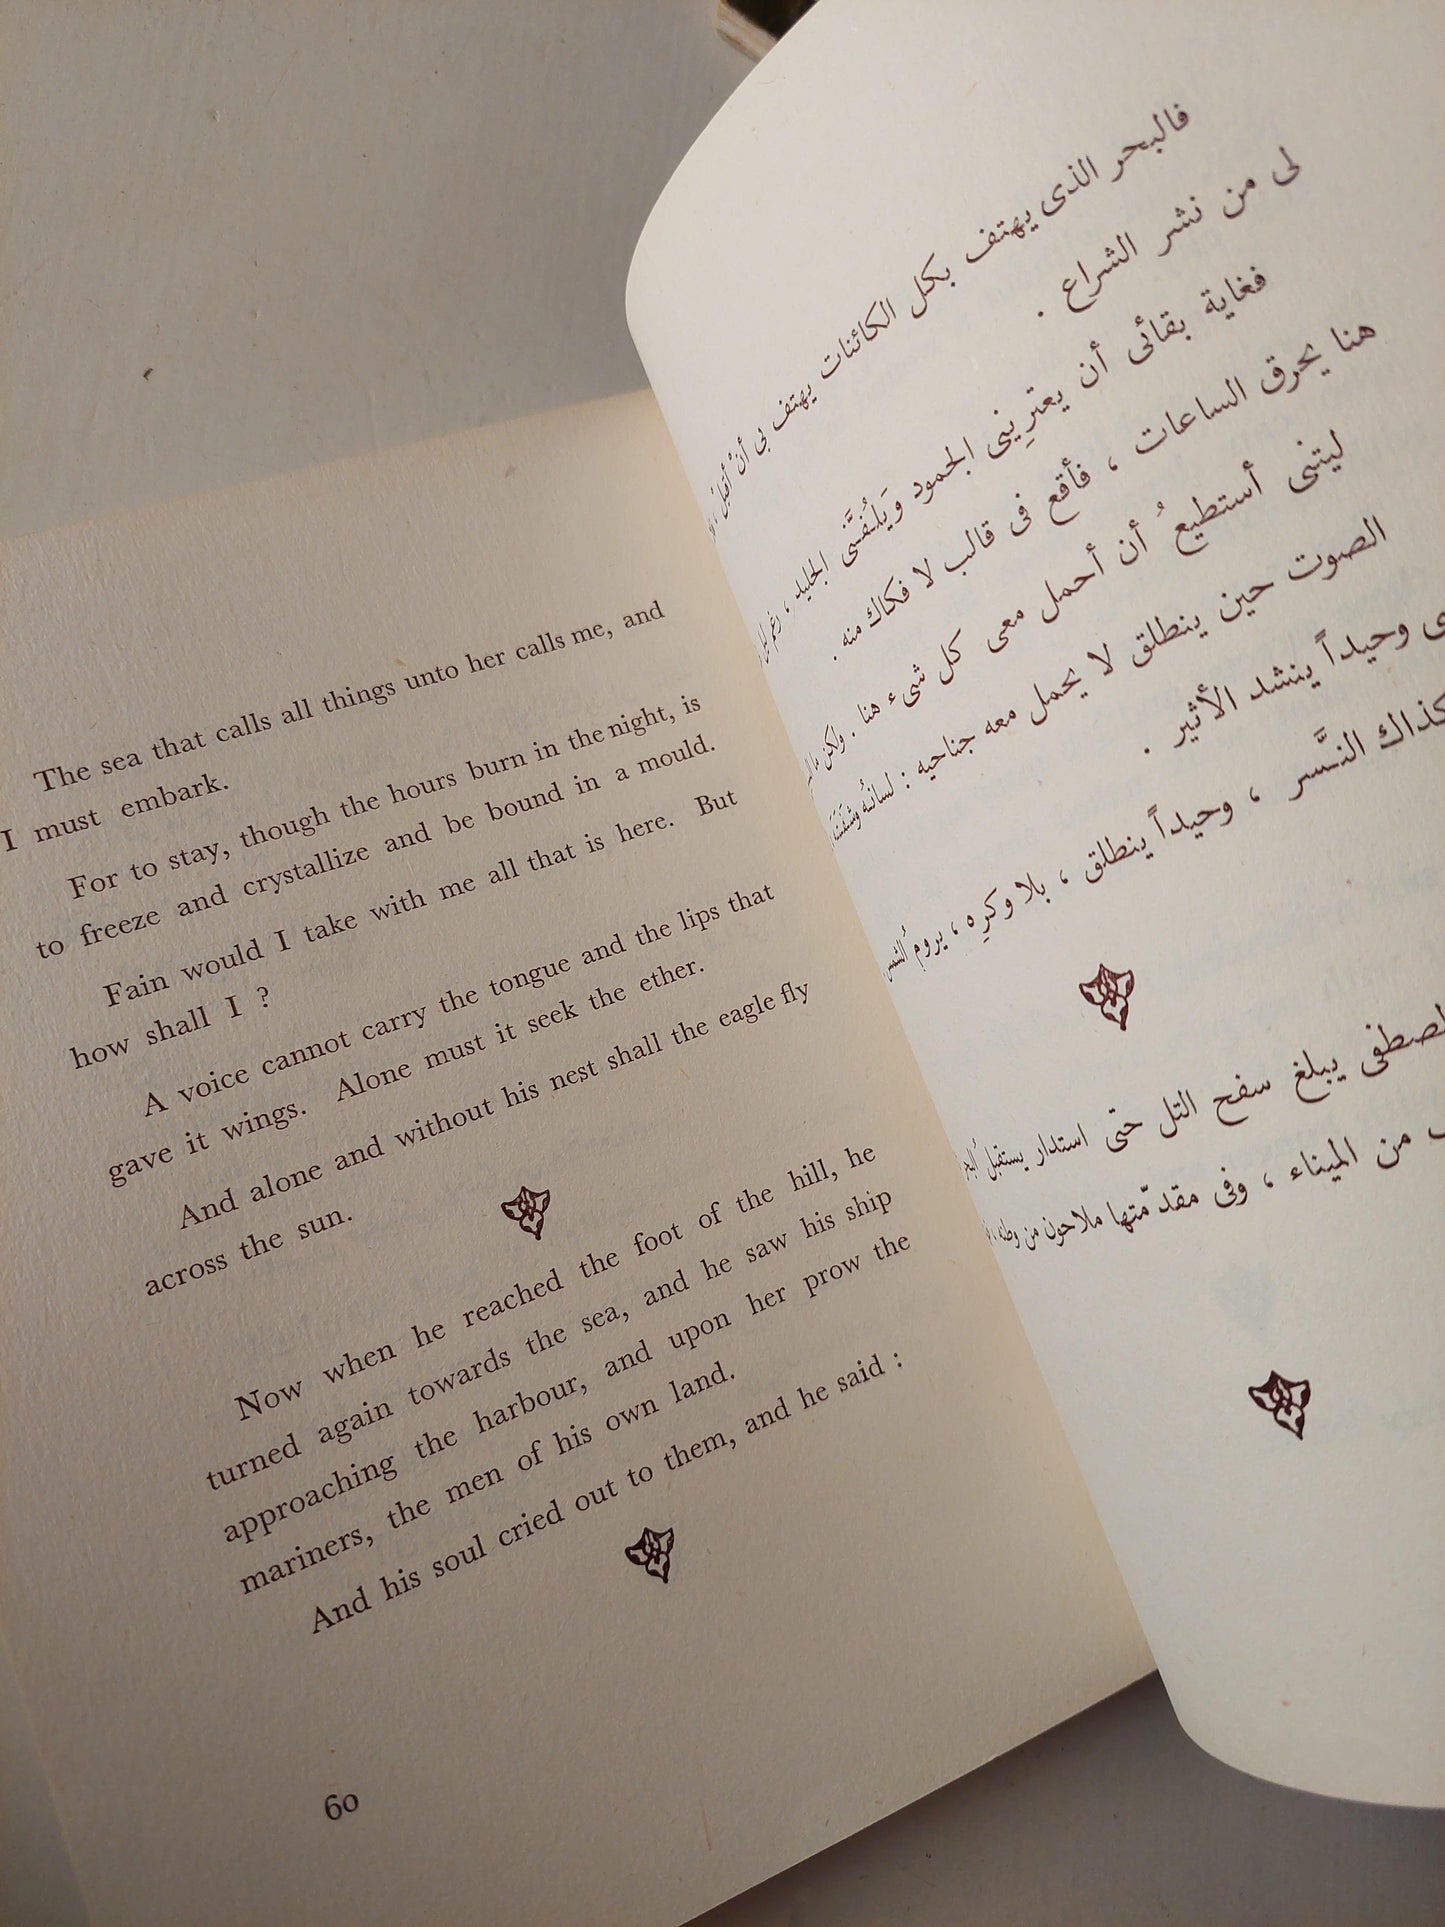 The sea that calls all things unto her calls me, and
I must embark.
For to stay, though the hours burn in the night, is
to freeze and crystallize and be bound in a mould.
Fain would I take with me all that is here. But
how shall I ?
A voice cannot carry the tongue and the lips that
gave it wings. Alone must it seek the ether.
And alone and without his nest shall the eagle fly
across the sun.
Now when he reached the foot of the hill, he
turned again towards the sea, and he saw his ship
approaching the harbour, and upon her prow the
mariners, the men of his own land.
And his soul cried out to them, and he said :
60
فالبحر الذى يهتف بكل الكائنات يهتف بى أنْ أقبل ،
لى من نشر الشراع .
فغاية بقائى أن يعترِينى الجمود وَيلُفَّنى الجليد ، رغم
هنا يحرق الساعات ، فأقع فى قالب لا فكاك منه .
ليتنى أستطيعُ أن أحمل معى كل شىء هنا . ولكن
الصوت حين ينطلق لا يحمل معه جناحيه : لسانُه
وحيداً ينشد الأثير .
كذاك النَّسر ، وحيداً ينطلق ، بلا وكرِه ، يروم الشمس
يبلغ سفح التل حتى استدار يستقبلُ
من الميناء ، وفى مقدّمتها ملاحون من وطنه ،